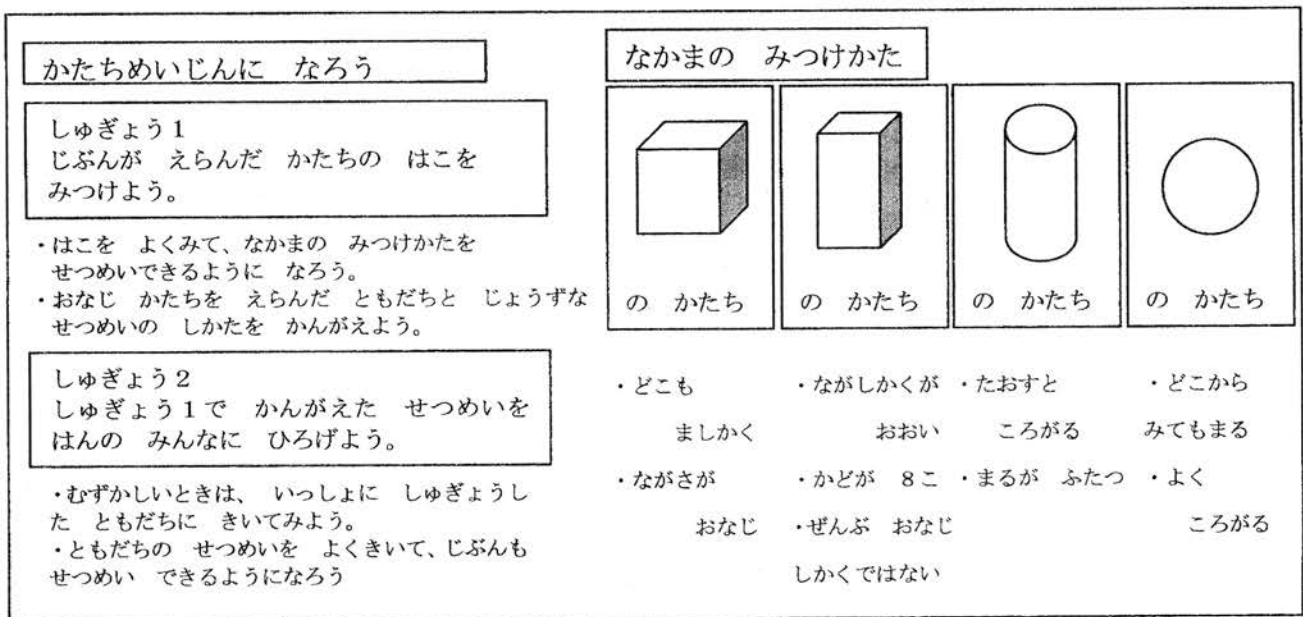 かたちめいじんに　なろう
しゅぎょう１
じぶんが　えらんだ　かたちの　はこを
みつけよう。
・はこを　よくみて、なかまの　みつけかたを
せつめいできるように　なろう。
・おなじ　かたちを　えらんだ　ともだちと　じょうずな
せつめいの　しかたを　かんがえよう。
しゅぎょう２
しゅぎょう１で　かんがえた　せつめいを
はんの　みんなに　ひろげよう。
・むずかしいときは、　いっしょに　しゅぎょうし
た　ともだちに　きいてみよう。
・ともだちの　せつめいを　よくきいて、じぶんも
せつめい　できるようになろう
なかまの　みつけかた
の　かたち
・どこも
ましかく
・ながさが
おなじ
の　かたち
・ながしかくが
おおい
・かどが　８こ
・ぜんぶ　おなじ
しかくではない
の　かたち
・たおすと
ころがる
・まるが　ふたつ
の　かたち
・どこから
みてもまる
・よく
ころがる